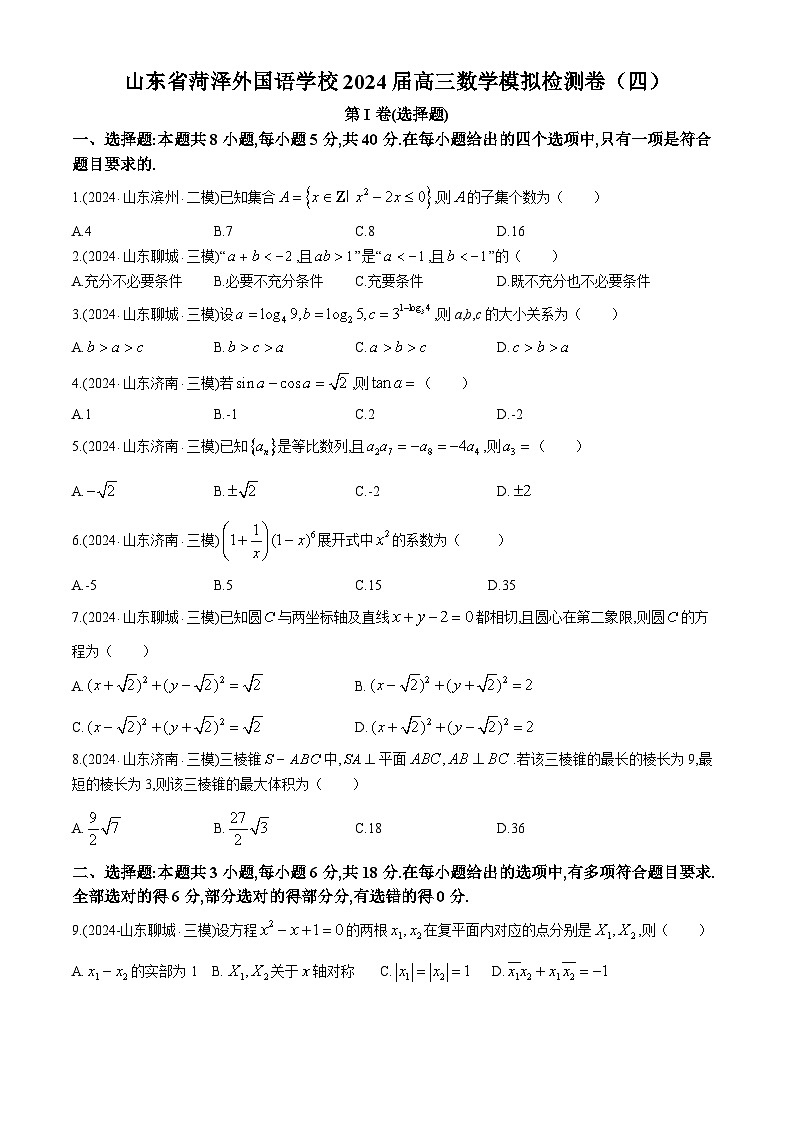 山东省菏泽外国语学校2024届高三数学模拟检测卷（四）
第I卷(选择题)
一、选择题:本题共8小题,每小题5分,共40分.在每小题给出的四个选项中,只有一项是符合
题目要求的.
1.(2024·山东滨州·二模)已知集合 A={x∈Z| x²−2x≤0},则A的子集个数为( )
A.4 B.7 C.8 D.16
2.(2024·山东聊城·三模)“a+b<−2,且ab>1”是“a<−1,且b<−1”的( )
A.充分不必要条件 B.必要不充分条件 C.充要条件 D.既不充分也不必要条件
3.(2024·山东聊城·三模)设a=log₄9,b=log₂5,c=3^{1−log₃4},则a,b,c的大小关系为( )
A.b>a>c B.b>c>a C.a>b>c D.c>b>a
4.(2024·山东济南·三模)若sin a−cos a=√2,则tan a=( )
A.1 B.-1 C.2 D.-2
5.(2024·山东济南·三模)已知{aₙ}是等比数列,且a₂a₇=−a₈=−4a₄,则a₃=( )
A.−√2 B.±√2 C.-2 D.±2
6.(2024·山东济南·三模)(1+1/x)(1−x)⁶展开式中x²的系数为( )
A.-5 B.5 C.15 D.35
7.(2024·山东聊城·三模)已知圆C与两坐标轴及直线x+y−2=0都相切,且圆心在第二象限,则圆C的方
程为( )
A.(x+√2)²+(y−√2)²=√2 B.(x−√2)²+(y+√2)²=2
C.(x−√2)²+(y+√2)²=√2 D.(x+√2)²+(y−√2)²=2
8.(2024·山东济南·三模)三棱锥S−ABC中,SA⊥平面ABC,AB⊥BC.若该三棱锥的最长的棱长为9,最
短的棱长为3,则该三棱锥的最大体积为( )
A.9/2√7 B.27/2√3 C.18 D.36
二、选择题:本题共3小题,每小题6分,共18分.在每小题给出的选项中,有多项符合题目要求.
全部选对的得6分,部分选对的得部分分,有选错的得0分.
9.(2024-山东聊城·三模)设方程x²−x+1=0的两根x₁,x₂在复平面内对应的点分别是X₁,X₂,则( )
A.x₁−x₂的实部为1 B.X₁,X₂关于x轴对称 C.|x₁|=|x₂|=1 D.x̅₁x₂+x₁x̅₂=−1